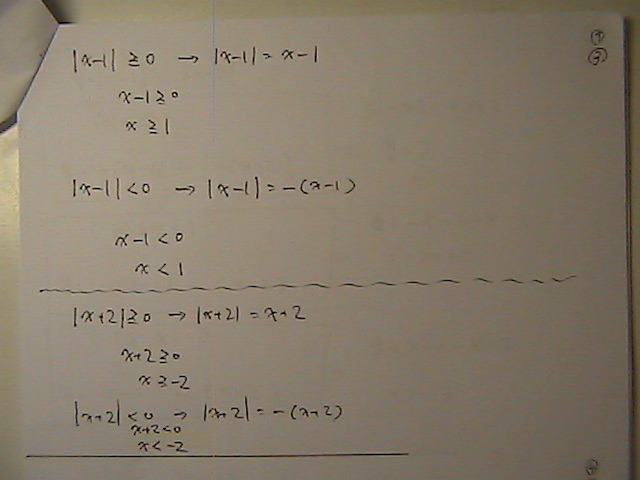 |x-1| ≥ 0 → |x-1| = x-1
x-1 ≥ 0
x ≥ 1
|x-1| < 0 → |x-1| = -(x-1)
x-1 < 0
x < 1
|x+2| ≥ 0 → |x+2| = x+2
x+2 ≥ 0
x ≥ -2
|x+2| < 0 → |x+2| = -(x+2)
x+2 < 0
x < -2